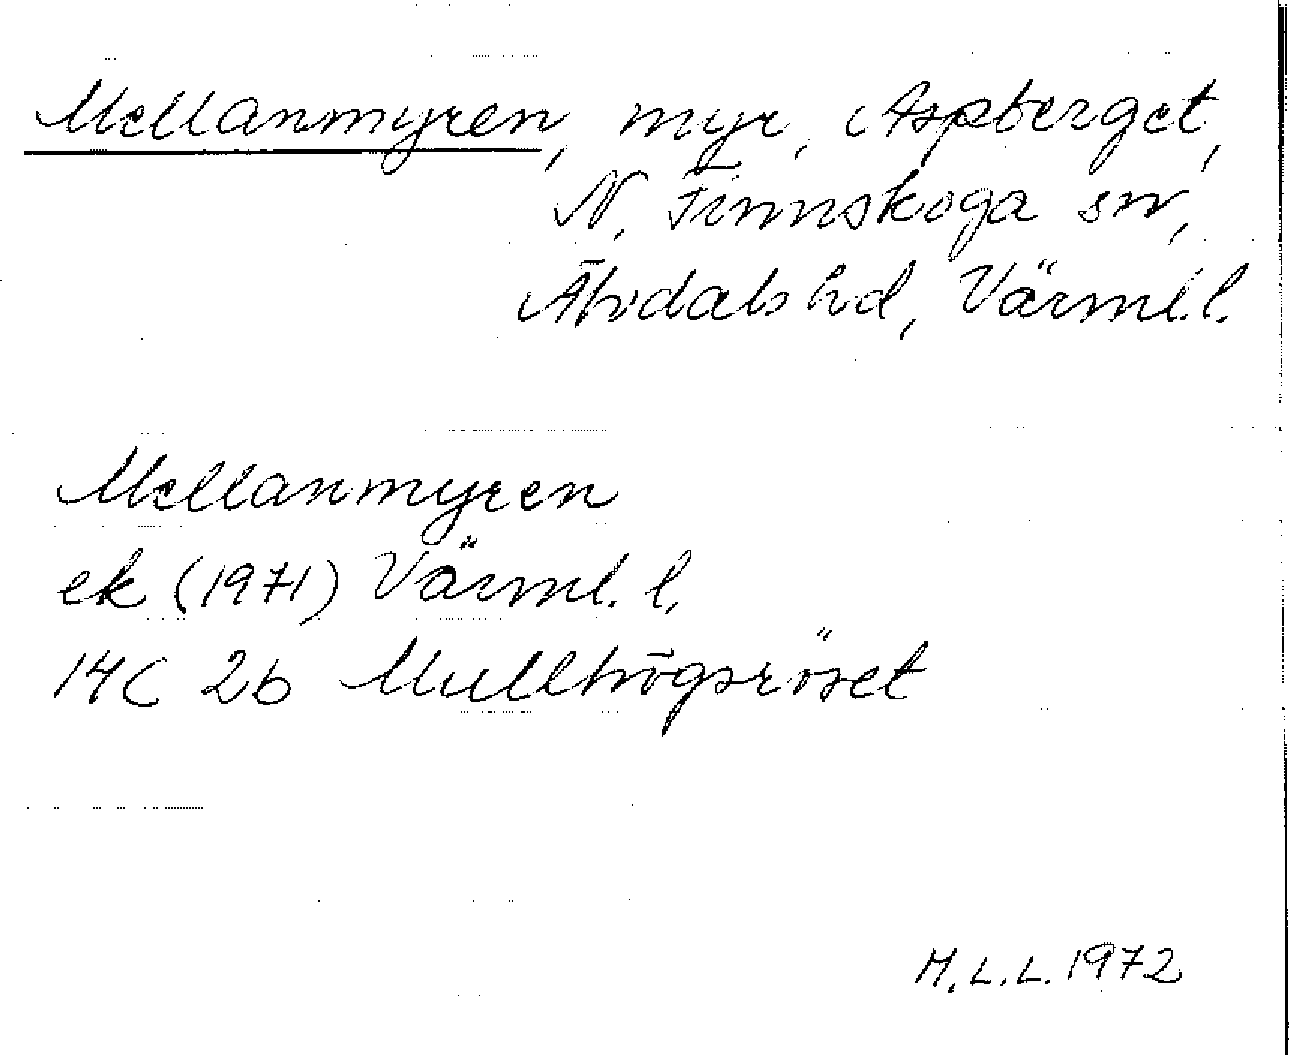 Mellanmyren, myr, Aspberget,
N. Finnskoga sn,
Älvdals hd, Värml. l.
Mellanmyren
ek (1971) Värml. l.
14C 2b Mullhögsröset
M.L.L. 1972